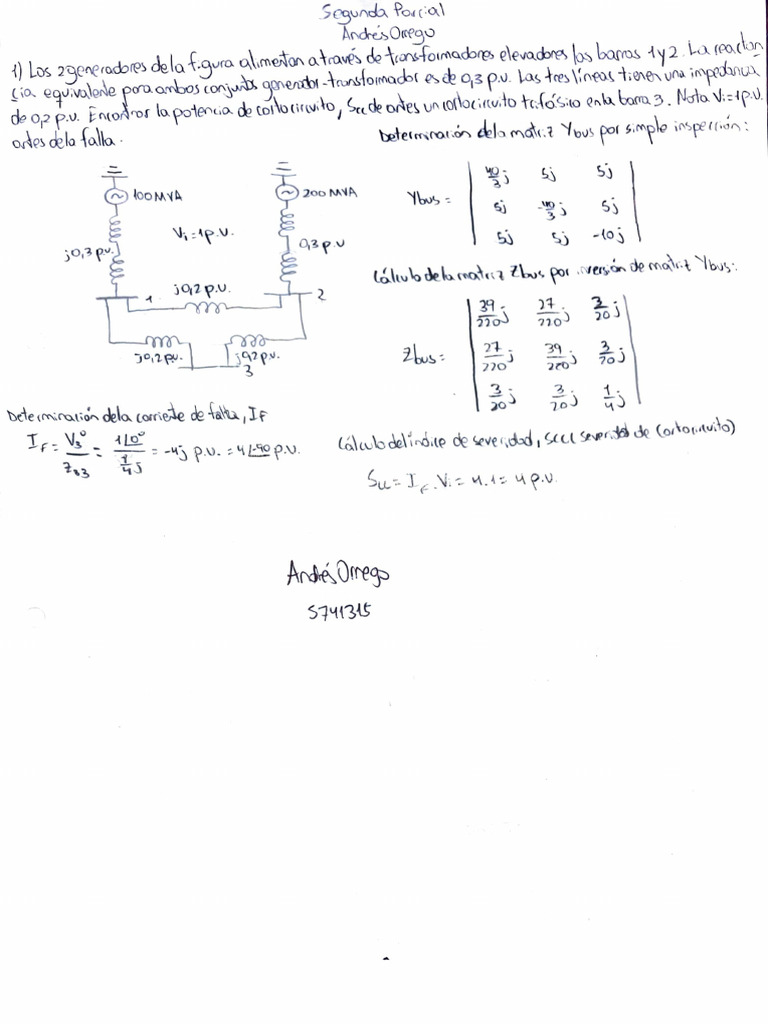 Segunda Parcial
Andrés Orrego
1) Los 2 generadores de la figura alimentan a través de transformadores elevadores las barras 1 y 2. La reactan
cia equivalente para ambos conjuntos generador-transformador es de 0,3 p.u. Las tres líneas tienen una impedancia
de 0,2 p.u. Encontrar la potencia de cortocircuito, Scc de antes un cortocircuito trifásico en la barra 3. Nota Vi=1p.u.
antes de la falla.
Determinación de la matriz Ybus por simple inspección:
100 MVA
200 MVA
Vi=1p.u.
j0,3 p.u.
0,3 p.u
1
j0,2 p.u.
2
j0,2 p.u.
j0,2 p.u.
3
Ybus =
40/3 j 5j 5j
5j -40/3 j 5j
5j 5j -10j
Cálculo de la matriz Zbus por inversión de matriz Ybus:
Zbus =
39/220 j 27/220 j 3/20 j
27/220 j 39/220 j 3/20 j
3/20 j 3/20 j 1/4 j
Determinación de la corriente de falta, IF
IF = V3°/Z33 = 1∠0°/(1/4 j) = -4j p.u. = 4∠-90 p.u.
Cálculo del índice de severidad, Scc( severidad de cortocircuito)
Scc = IF . Vi = 4.1 = 4 p.u.
Andrés Orrego
5741315